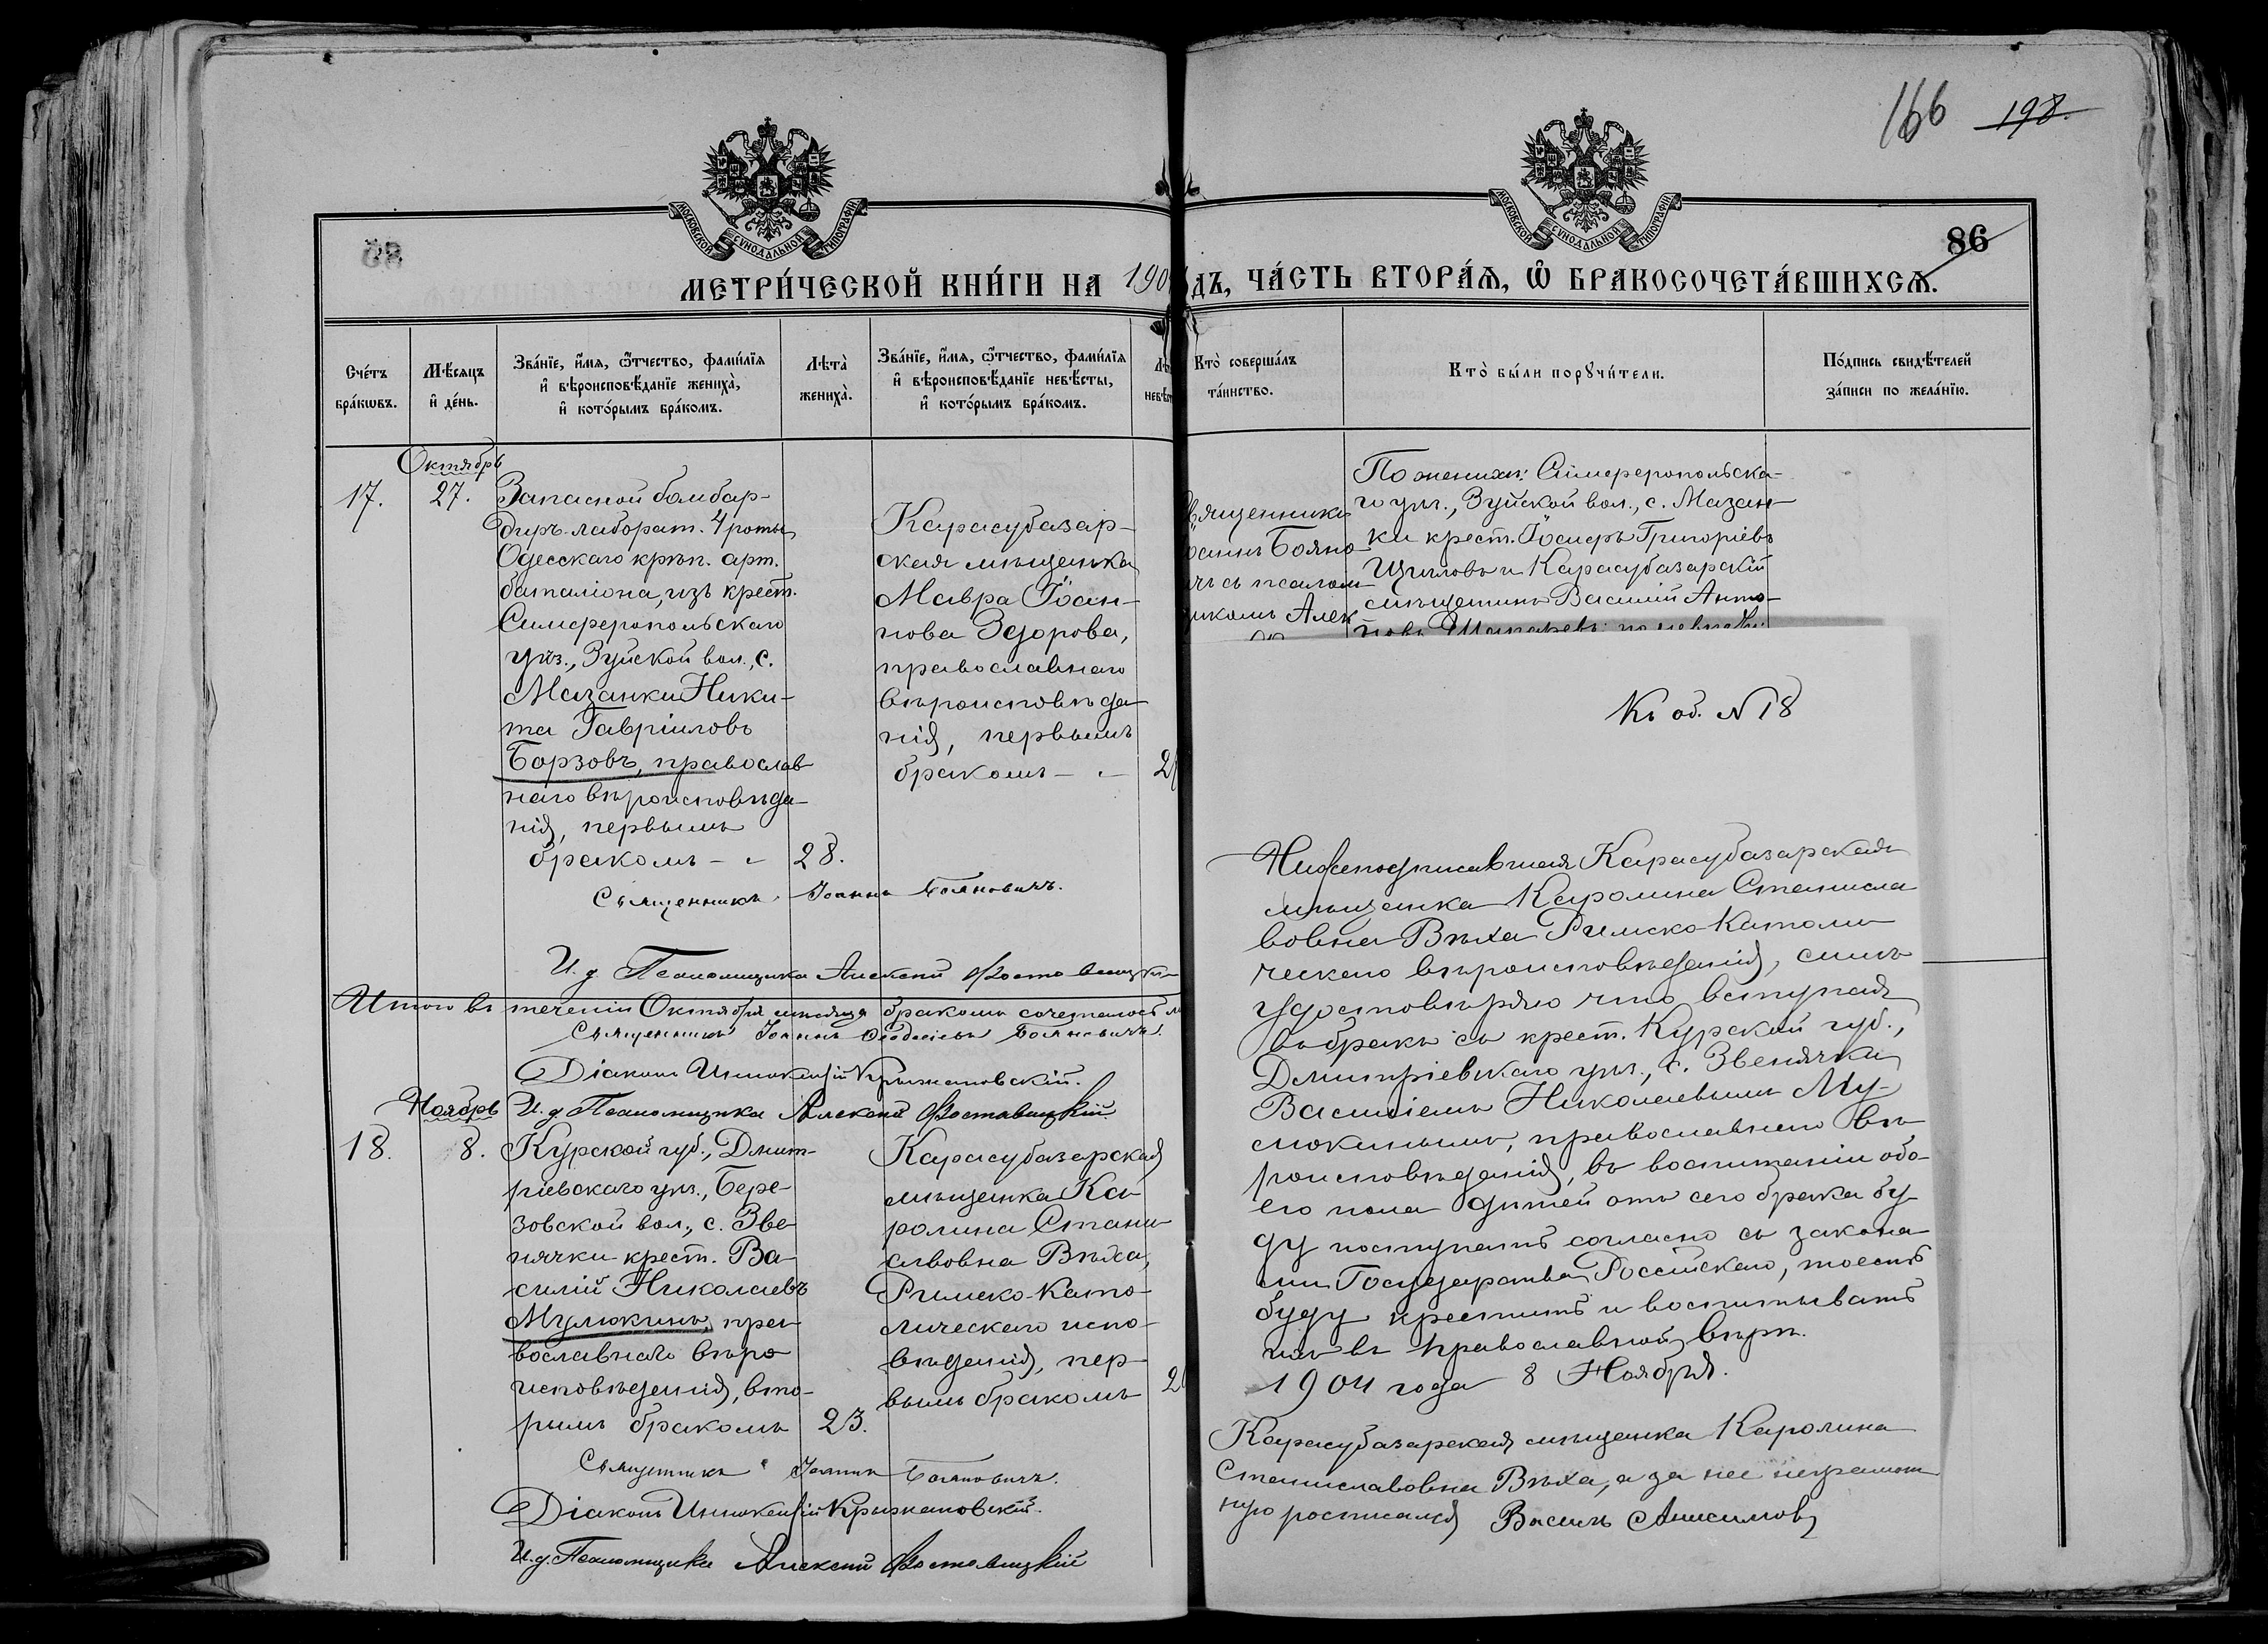 166 198.
МОСКОВСКОЙ СѴНОДАЛЬНОЙ ТИПОГРАФІИ
МОСКОВСКОЙ СѴНОДАЛЬНОЙ ТИПОГРАФІИ
86
МЕТРИ́ЧЕСКОЙ КНИ́ГИ НА 190
ДЪ, ЧА́СТЬ ВТОРА́Ѧ, Ѿ БРАКОСОЧЕТА́ВШИХСѦ.
Сче́тъ
бра́кѡвъ.
Мѣ́сяцъ
и де́нь.
Зва́нїе, и́мя, ѻ́тчество, фами́лїя
и вѣроисповѣ́данїе жениха̀,
и кото́рымъ бра́комъ.
Лѣта̀
жениха̀.
Зва́нїе, и́мя, ѻ́тчество, фами́лїя
и вѣроисповѣ́данїе невѣ́сты,
и кото́рымъ бра́комъ.
Лѣ
невѣс
Кто̀ соверша́лъ
та́инство.
Кто̀ бы́ли порꙋчи́тели.
По́дпись свидѣ́телей
за́писи по жела́нїю.
Октябрь
17.
27.
Запасной бомбар-
диръ лаборат. 4 роты
Одесскаго крѣп. арт.
баталіона, изъ крест.
Симферопольскаго
уѣз., Зуйской вол., с.
Мазанки Ники-
та Гавріиловъ
Борзовъ, православ
наго вѣроисповѣда-
нія, первымъ
бракомъ -
28.
Карасубазар-
ская мѣщанка
Мавра Іоан-
нова Здорова,
православнаго
вѣроисповѣда
нія, первымъ
бракомъ -
2
ященникъ
оаннъ Бояно
чъ съ псалом
икомъ Алек
По женихѣ: Симферопольска-
го уѣз., Зуйской вол., с. Мазан-
ки крест. Іосифъ Григоріевъ
Щиловъ и Карасубазарскій
мѣщанинъ Василій Анто-
новъ
Священникъ Іоаннъ Бояновичъ.
И. д. Псаломщика Алексій
Итого въ теченіи Октября мѣсяца бракомъ сочеталось
Священникъ Іоаннъ Ѳеодосіевъ Бояновичъ.
Діаконъ Иннокентій Крыжановскій.
И. д. Псаломщика Алексій
Ноябрь
18.
8.
Курской губ., Дмит-
ріевскаго уѣз., Бере-
зовской вол., с. Зве-
нячки крест. Ва-
силій Николаевъ
Мулюкинъ, пра-
вославнаго вѣро
исповѣданія, вто-
рымъ бракомъ
23.
Карасубазарская
мѣщанка Ка
ролина Стани
славовна Вѣха,
Римско-Като-
лическаго испо-
вѣданія, пер-
вымъ бракомъ
2
Священникъ Іоаннъ Бояновичъ.
Діаконъ Иннокентій Крыжановскій.
И. д. Псаломщика Алексій
Къ об. № 18
Нижеподписавшаяся Карасубазарская
мѣщанка Каролина Станисла
вовна Вѣха Римско-Католи
ческаго вѣроисповѣданія, симъ
удостовѣряю что вступая
въ бракъ съ крест. Курской губ.,
Дмитріевскаго уѣз., с. Звенячки
Василіемъ Николаевымъ Му-
люкинымъ, православнаго вѣ-
роисповѣданія, въ воспитаніи обо-
его пола дѣтей отъ сего брака бу
ду поступать согласно съ закона
ми Государства Россійскаго, тоесть
буду крестить и воспитывать
ихъ въ православной вѣрѣ.
1904 года 8 Ноября.
Карасубазарская мѣщанка Каролина
Станиславовна Вѣха, а за нее неграмот
ную росписался Василь Анисимовъ